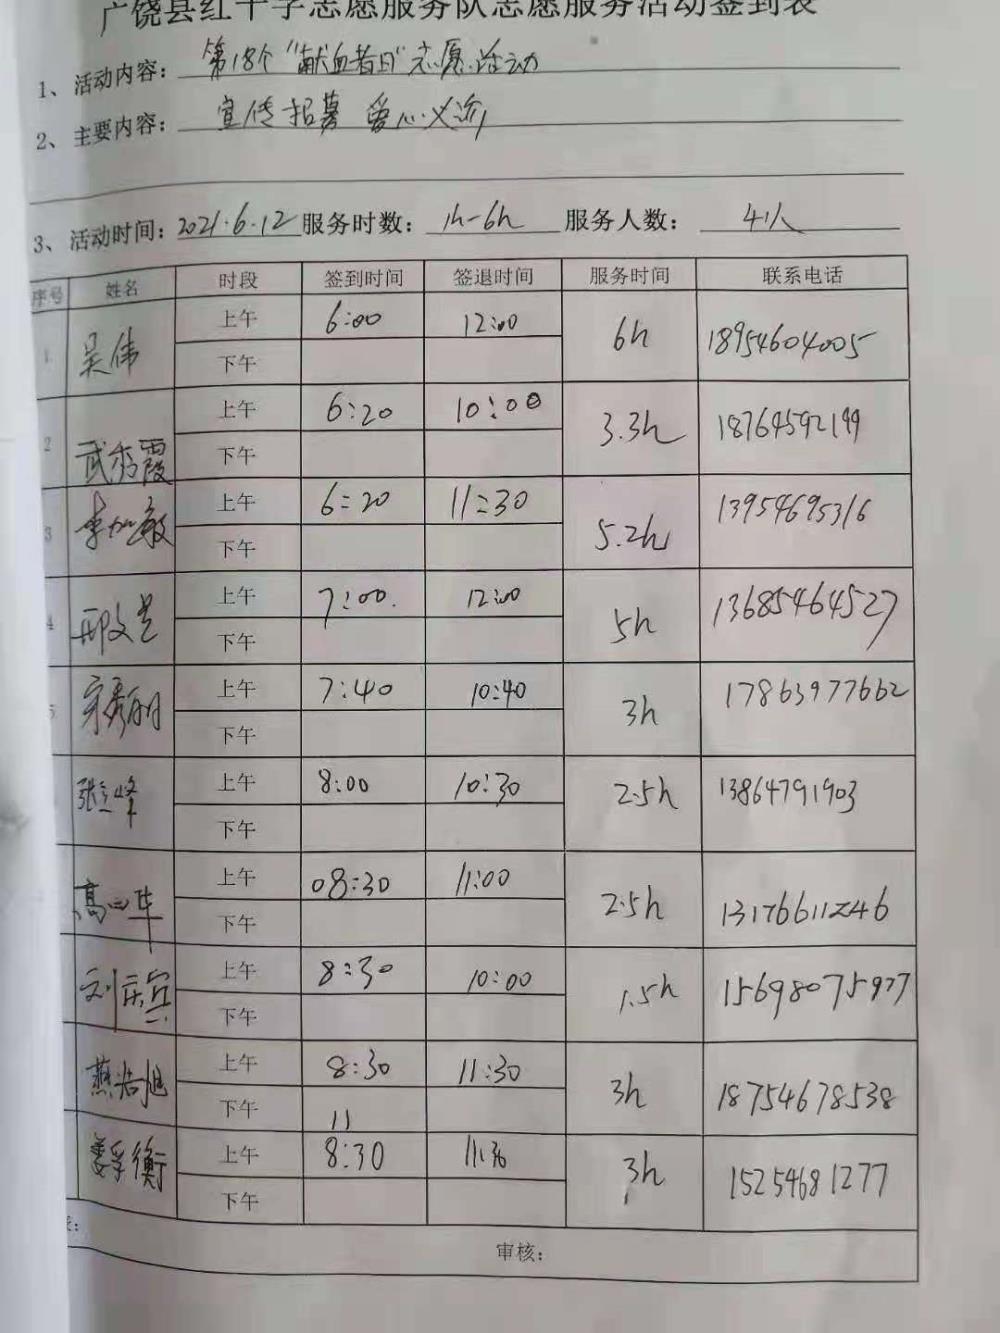 广饶县红十字志愿服务队志愿服务活动签到表
1、活动内容：第18个“献血者日”志愿活动
2、主要内容：宣传招募 爱心义诊
3、活动时间：2021.6.12 服务时数：1h-6h 服务人数：41人
序号 姓名 时段 签到时间 签退时间 服务时间 联系电话
1 吴伟 上午 6:00 12:00 6h 18954604005
下午
2 武秀霞 上午 6:20 10:00 3.3h 18764592199
下午
3 李加敏 上午 6:20 11:30 5.2h 13954695316
下午
4 邢文 上午 7:00. 12:00 5h 13685464527
下午
5 宋秀丽 上午 7:40 10:40 3h 17863977662
下午
张峰 上午 8:00 10:30 2.5h 13864791903
下午
高四华 上午 08:30 11:00 2.5h 13176611246
下午
刘庆宾 上午 8:30 10:00 1.5h 15698075977
下午
燕浩旭 上午 8:30 11:30 3h 18754678538
下午 11
姜孚衡 上午 8:30 11:30 3h 15254681277
下午
审核：